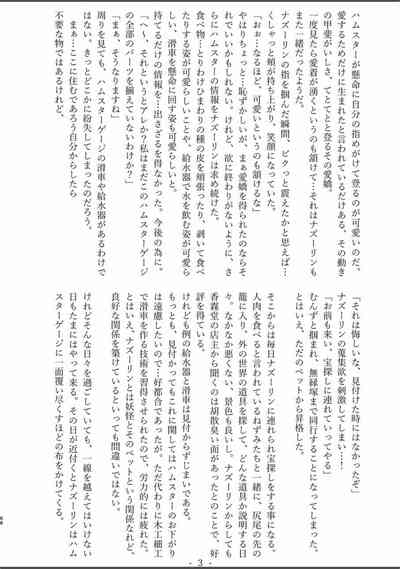 ハムスターが懸命に自分の指めがけて登るのが可愛いのだ、
愛するためだけに生まれたと言われているだけある、その動き
の甲斐がいしさ、てとてとと登るその愛嬌。
一度見たら愛着が湧くというのも頷けて…それはナズーリンも
また一緒だったようだ。
ナズーリンの指を掴んだ瞬間、ビタっと震えたかと思えば…
くしゃっと頬が持ち上がり、笑顔になっていた。
「おお…なるほど、可愛いというのも頷けるな」
やはりちょっと…恥ずかしいが、まぁ愛嬌を得られたのならそ
れでいいかもしれない。けれど、欲に終わりがないように、さ
らにハムスターの情報をナズーリンは求め続けた。
食べ物…とりわけひまわりの種の皮を頬張ったり、剥いて食べ
たりする姿が可愛らしいことや、給水器で水を飲む姿が可愛ら
しい、滑車を懸命に回す姿も可愛らしいと。
持てるだけの情報を…出さざるを得なかった。今後の為に。
「へ～、それというとアレか？私はまだこのハムスターゲージ
の全部のパーツを揃えていないわけか？」
「まぁ、そうなりますね」
周りを見ても、ハムスターゲージの滑車や給水器があるわけで
はない。きっとどこかに紛失してしまったのだろう。
まぁ…ここに住むであろう自分からしたら
不要な物ではあるけれど、
「それは悔しいな、見付けた時にはなかったぞ」
ナズーリンの蒐集欲を刺激してしまい…！
「お前も来い、宝探しに連れていってやる」
むんずと掴まれ、無縁塚まで同行することになってしまった。
とはいえ、ただのペットから昇格した。
そこからは毎日ナズーリンに連れられ宝探しをする事になる。
人肉を食べると言われているねずみたちと一緒に、尻尾の先の
籠に入り、外の世界の道具を探して、どんな道具か説明する日
々。なかなか悪くない、景色も良いし。ナズーリンからしても
香霖堂の店主から聞くのは胡散臭い面があったとのことで、好
評を得ている。
けれども例の給水器と滑車は見付からずじまいである。
もっとも、見付かってもこれに関してはハムスターのお下がり
は遠慮したいので…好都合であったが、ただ代わりに木工細工
で滑車を作る技術を習得させられたので、労力的には疲れた。
とはいえ、ナズーリンとは妖怪とそのペットという関係なれど、
良好な関係を築けているといっても間違いではない。
けれどそんな日々を過ごしていても、一線を越えてはいけない
日もたまにはやって来る。その日が近付くとナズーリンはハム
スターゲージに一面覆い尽くすほどの布をかけてくる。
- 3 -